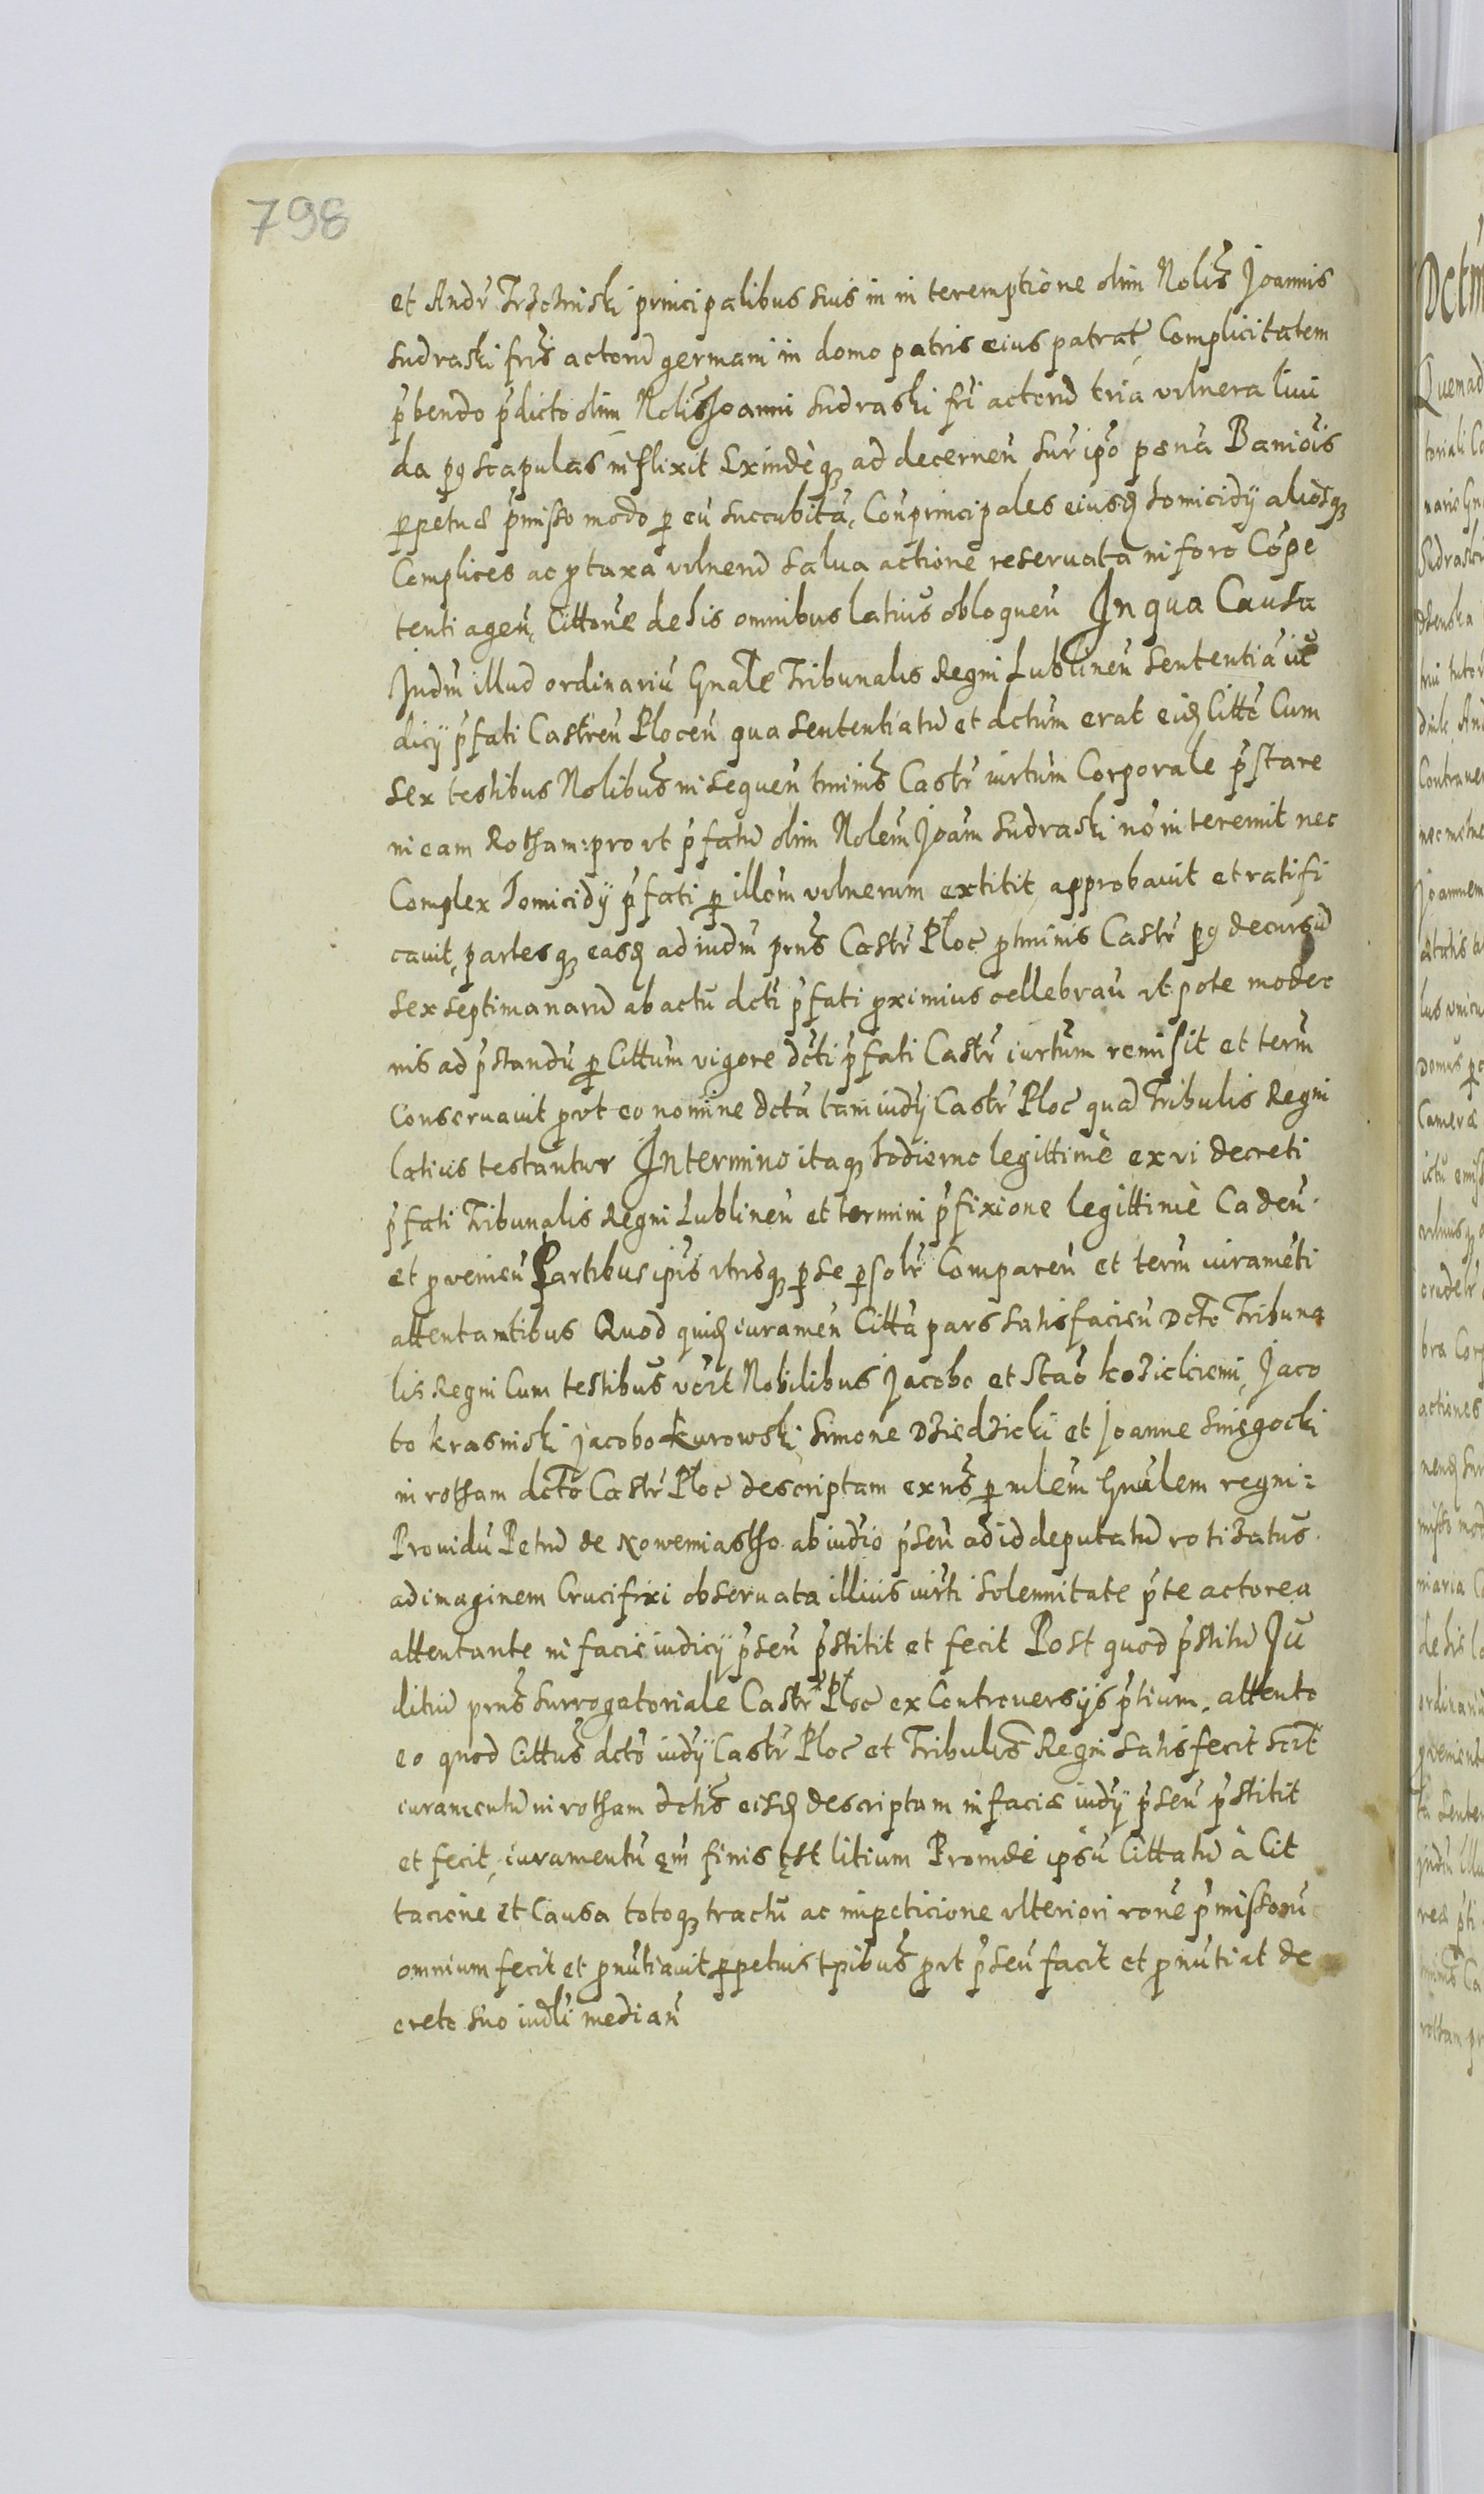 798
et Andr Trzcinski principalibus suis in in teremptione olim Nolis Joannis
Sudraski fris actorū germani in domo patris eius patrat, Complicitatem
p̄bendo p̄dicto olim Nolis Joanni Sudraski fri actorū tria vulnera liui
da pg scapulas inflixit Exindèq, ad decerneń sup ipo pœnā Baniois
ppetuæ p̄misso modo p eū succubitā, Conprincipales eiusd homicidÿ aliosq,
Complices ac p taxa vulnerū salua actione reseruata in foro Cōpe
tenti ageń, Cittone de his omnibus latius obloqueń In qua Causa
Judm illud ordinariū Gnale Tribunalis Regni Lublineń sententiā iu
dicÿ p̄fati Castreń Ploceń qua sententiatū et dctum erat eid Citto Cum
sex testibus Nolibus in sequeń tminis Castr iurtum Corporale p̄stare
in eam Rotham: pro ut p̄fatū olim Nolem Joam Sudraski nō interemit nec
Complex homicidÿ p̄fati p illom vulnerum extitit, approbauit et ratifi
cauit, partesq, easd ad iudm pns Castr Ploc p tminis Castr pg decursū
sex septimanarū ab actu dcti p̄fati pximius cellebrań ut pote moder
nis ad p̄standū p Cittum vigore dcti p̄fati Castr iurtum remisit et term
conseruauit put eo nomine dcta tam iudÿ Castr Ploc quā Tribulis Regni
latius testantur In termino itaq, hodierno legittimè ex vi decreti
p̄fati Tribunalis Regni Lublineń et termini p̄fixione legittimè Cadeń
et pvenień Partibus ipis utrisq, p se psolr Compareń et term iuramēti
attentantibus Quod quid iurameń Citta pars satisfacień Dcto Tribuna
lis Regni Cum testibus vdzt Nobilibus Jacobo et Stao kozicki, Jaco
bo krasniski jacobo Kurowski, Simone Dziedzicki et Joanne Sniegocki
in rotham dcto Castr Ploc descriptam exns p mlem Gnalem regni:
Prouidū Petrū de Nowemiastho ab iudio p̄seń ad id deputatū rotizatus
ad imaginem Crucifixi obseruata illius iurti solemnitate p̄te actorea
attentante in facie iudicÿ p̄seń p̄stitit et fecit Post quod p̄stitū Ju
ditiū pns Surrogatoriale Castr Ploc ex Controuersÿs p̄tium, attento
eo quod Cittus dcto iudÿ Castr Ploc et Tribulis Regni satisfecit Scit
iuramentū in rotham dctis eisd descriptam in facie iudÿ p̄seń p̄stitit
et fecit, iuramentū em finis est litium Proinde ipsū Cittatū à Cit
tacione et Causa totoq, tractu ac impeticione ulteriori rone p̄missorū
omnium fecit et pnūtiauit ppetuis tpibus put p̄seń facit et pnūtiat de
creto suo iudli mediań